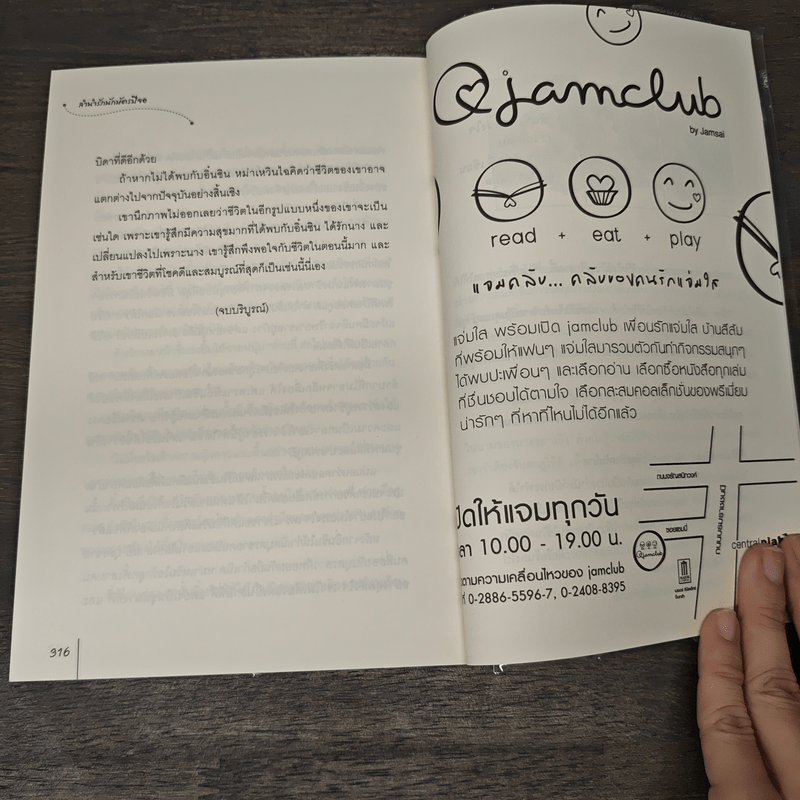 ลำนำรักนักพัตรปีจอ
บิดาที่ดีอีกด้วย
ถ้าหากไม่ได้พบกับอิ๋นซิน หม่าเหวินไฉคิดว่าชีวิตของเขาอาจ
แตกต่างไปจากปัจจุบันอย่างสิ้นเชิง
เขานึกภาพไม่ออกเลยว่าชีวิตในอีกรูปแบบหนึ่งของเขาจะเป็น
เช่นใด เพราะเขารู้สึกมีความสุขมากที่ได้พบกับอิ๋นซิน ได้รักนาง และ
เปลี่ยนแปลงไปเพราะนาง เขารู้สึกพึงพอใจกับชีวิตในตอนนี้มาก และ
สำหรับเขาชีวิตที่โชคดีและสมบูรณ์ที่สุดก็เป็นเช่นนี้นี่เอง
(จบบริบูรณ์)
316
jamclub
by Jamsai
read + eat + play
แจมคลับ... คลับของคนรักแจ่มใส
แจ่มใส พร้อมเปิด jamclub เพื่อนรักแจ่มใส บ้านสีส้ม
ที่พร้อมให้แฟนๆ แจ่มใสมารวมตัวกันทำกิจกรรมสนุกๆ
ได้พบปะเพื่อนๆ และเลือกอ่าน เลือกซื้อหนังสือทุกเล่ม
ที่ชื่นชอบได้ตามใจ เลือกสะสมคอลเล็กชั่นของพรีเมี่ยม
น่ารักๆ ที่หาที่ไหนไม่ได้อีกแล้ว
ปิดให้แจมทุกวัน
ลา 10.00 - 19.00 น.
ตามความเคลื่อนไหวของ jamclub
ที่ 0-2886-5596-7, 0-2408-8395
ถนนจรัญสนิทวงศ์
ซอยแมนมี่
jamclub
central